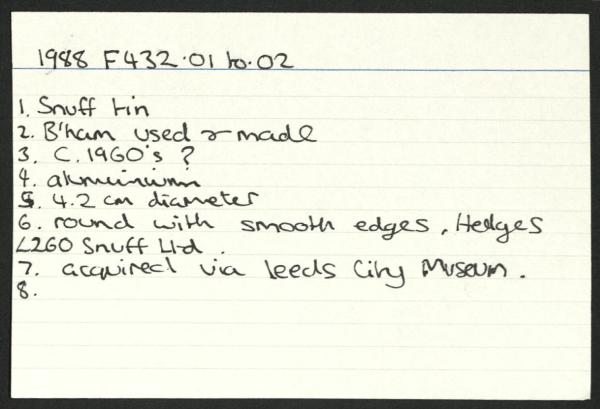 1988 F432.01 to .02
1. Snuff tin
2. B'ham used & made
3. C. 1960's ?
4. aluminium
5. 4.2 cm diameter
6. round with smooth edges, Hedges
L260 Snuff Ltd.
7. acquired via Leeds City Museum.
8.